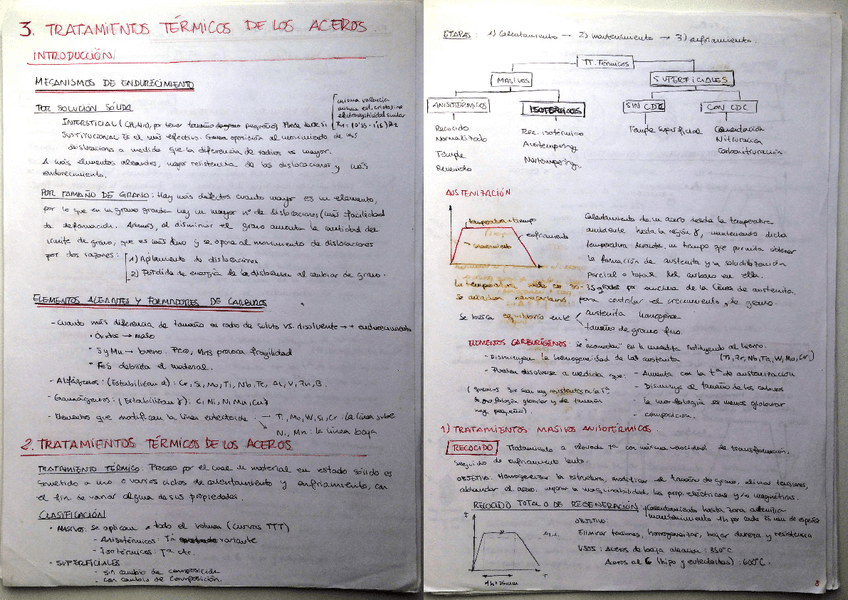 3. TRATAMIENTOS TÉRMICOS DE LOS ACEROS
INTRODUCCIÓN
MECANISMOS DE ENDURECIMIENTO
POR SOLUCIÓN SÓLIDA
INTERSTICIAL (C,H,N,O, por tener tamaño pequeño)
SUSTITUCIONAL Es el más efectivo. Genera oposición al movimiento de
dislocaciones a medida que la diferencia de radios es mayor.
A más elementos aleantes, mayor resistencia de las dislocaciones y más
endurecimiento.
POR TAMAÑO DE GRANO: Hay más defectos cuanto mayor es un elemento,
por lo que en un grano grande hay un mayor nº de dislocaciones (más facilidad
de deformación. Además, al disminuir el grano aumenta la cantidad del
límite de grano, que es más duro y se opone al movimiento de dislocaciones
por dos razones: 1) Apilamiento de dislocaciones
2) Pérdida de energía de la dislocación al cambiar de grano.
ELEMENTOS ALEANTES Y FORMADORES DE CARBUROS
- Cuanto más diferencia de tamaño en radio de soluto vs. disolvente → + endurecimiento
S y Mn → bueno. provoca fragilidad
FeS debilita el material.
- Alfágenos: (Estabilizan α): Cr, Si, Mo, Ti, Nb, Ta, Al, V, Zn, B.
- Gammágenos: (Estabilizan γ): C, Ni, N, Mn, Cu
- Elementos que modifican la línea eutectoide → Ti, Mo, W, Si, Cr: la línea sube
Ni, Mn: la línea baja
2. TRATAMIENTOS TÉRMICOS DE LOS ACEROS
TRATAMIENTO TÉRMICO: Proceso por el cual un material en estado sólido es
sometido a uno o varios ciclos de calentamiento y enfriamiento, con
el fin de variar alguna de sus propiedades.
CLASIFICACIÓN
• MASIVOS: Se aplican a todo el volumen (curvas TTT)
- Anisotérmicos: Tª variante
- Isotérmicos: Tª cte.
• SUPERFICIALES
- sin cambio de composición
- con cambio de composición.
ETAPAS: 1) Calentamiento → 2) mantenimiento → 3) enfriamiento.
TT. Térmicos
MASIVOS SUPERFICIALES
ANISOTÉRMICOS ISOTÉRMICOS SIN CDC CON CDC
Recocido Rec. isotérmico Temple superficial Cementación
Normalizado Austempering Nitruración
Temple Martempering Carbonitruración
Revenido
AUSTENIZACIÓN
temperatura + tiempo
enfriamiento
calentamiento
Calentamiento de un acero desde la temperatura
ambiente hasta la región γ, manteniendo dicha
temperatura durante un tiempo que permita obtener
la formación de austenita y la solubilización
parcial o total del carbono en ella.
La temperatura grados por encima de la línea de austenita.
para controlar el crecimiento de grano.
Se busca equilibrio entre austenita homogénea
tamaño de grano fino
ELEMENTOS CARBURÍGENOS: se "acomodan" en la cementita sustituyendo al hierro.
- Disminuyen la homogeneidad de las austenita (Ti, Zr, Nb, Ta, W, Mo, Cr)
- Pueden disolverse a medida que: - Aumenta con la tª de austenización
- Disminuye el tamaño de los carburos
- la morfología es menos globular
- composición.
1) TRATAMIENTOS MASIVOS ANISOTÉRMICOS
RECOCIDO Tratamiento a elevada Tª con mínima velocidad de transformación.
seguido de enfriamiento lento.
OBJETIVO: Homogeneizar la estructura, modificar el tamaño de grano, eliminar tensiones,
ablandar el acero, mejorar la maquinabilidad, las prop. eléctricas y/o magnéticas.
RECOCIDO TOTAL O DE REGENERACIÓN
OBJETIVO:
Eliminar tensiones, homogeneizar, bajar dureza y resistencia
USOS: Aceros de baja aleación: 850°C
Aceros al C (hipo y eutectoides): 600°C
8